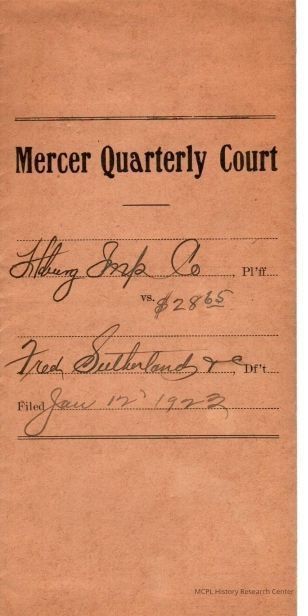 Mercer Quarterly Court
H.burg Imp Co, Pl'ff
vs. $28 65
Fred Sutherland &c, Df't.
Filed Jan 12" 1922
MCPL History Research Center